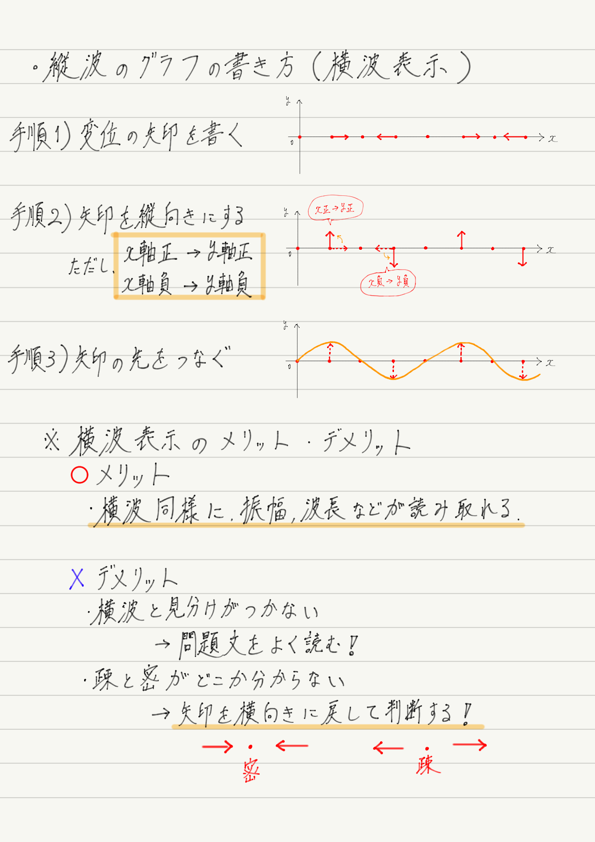 ・縦波のグラフの書き方(横波表示)
手順1)変位の矢印を書く
y
0
x
手順2)矢印を縦向きにする
ただし、
x軸正→y軸正
x軸負→y軸負
y
x正→y正
0
x
x負→y負
手順3)矢印の先をつなぐ
y
0
x
※ 横波表示のメリット・デメリット
○ メリット
・横波同様に、振幅,波長などが読み取れる.
X デメリット
・横波と見分けがつかない
→問題文をよく読む!
・疎と密がどこか分からない
→矢印を横向きに戻して判断する!
密
疎